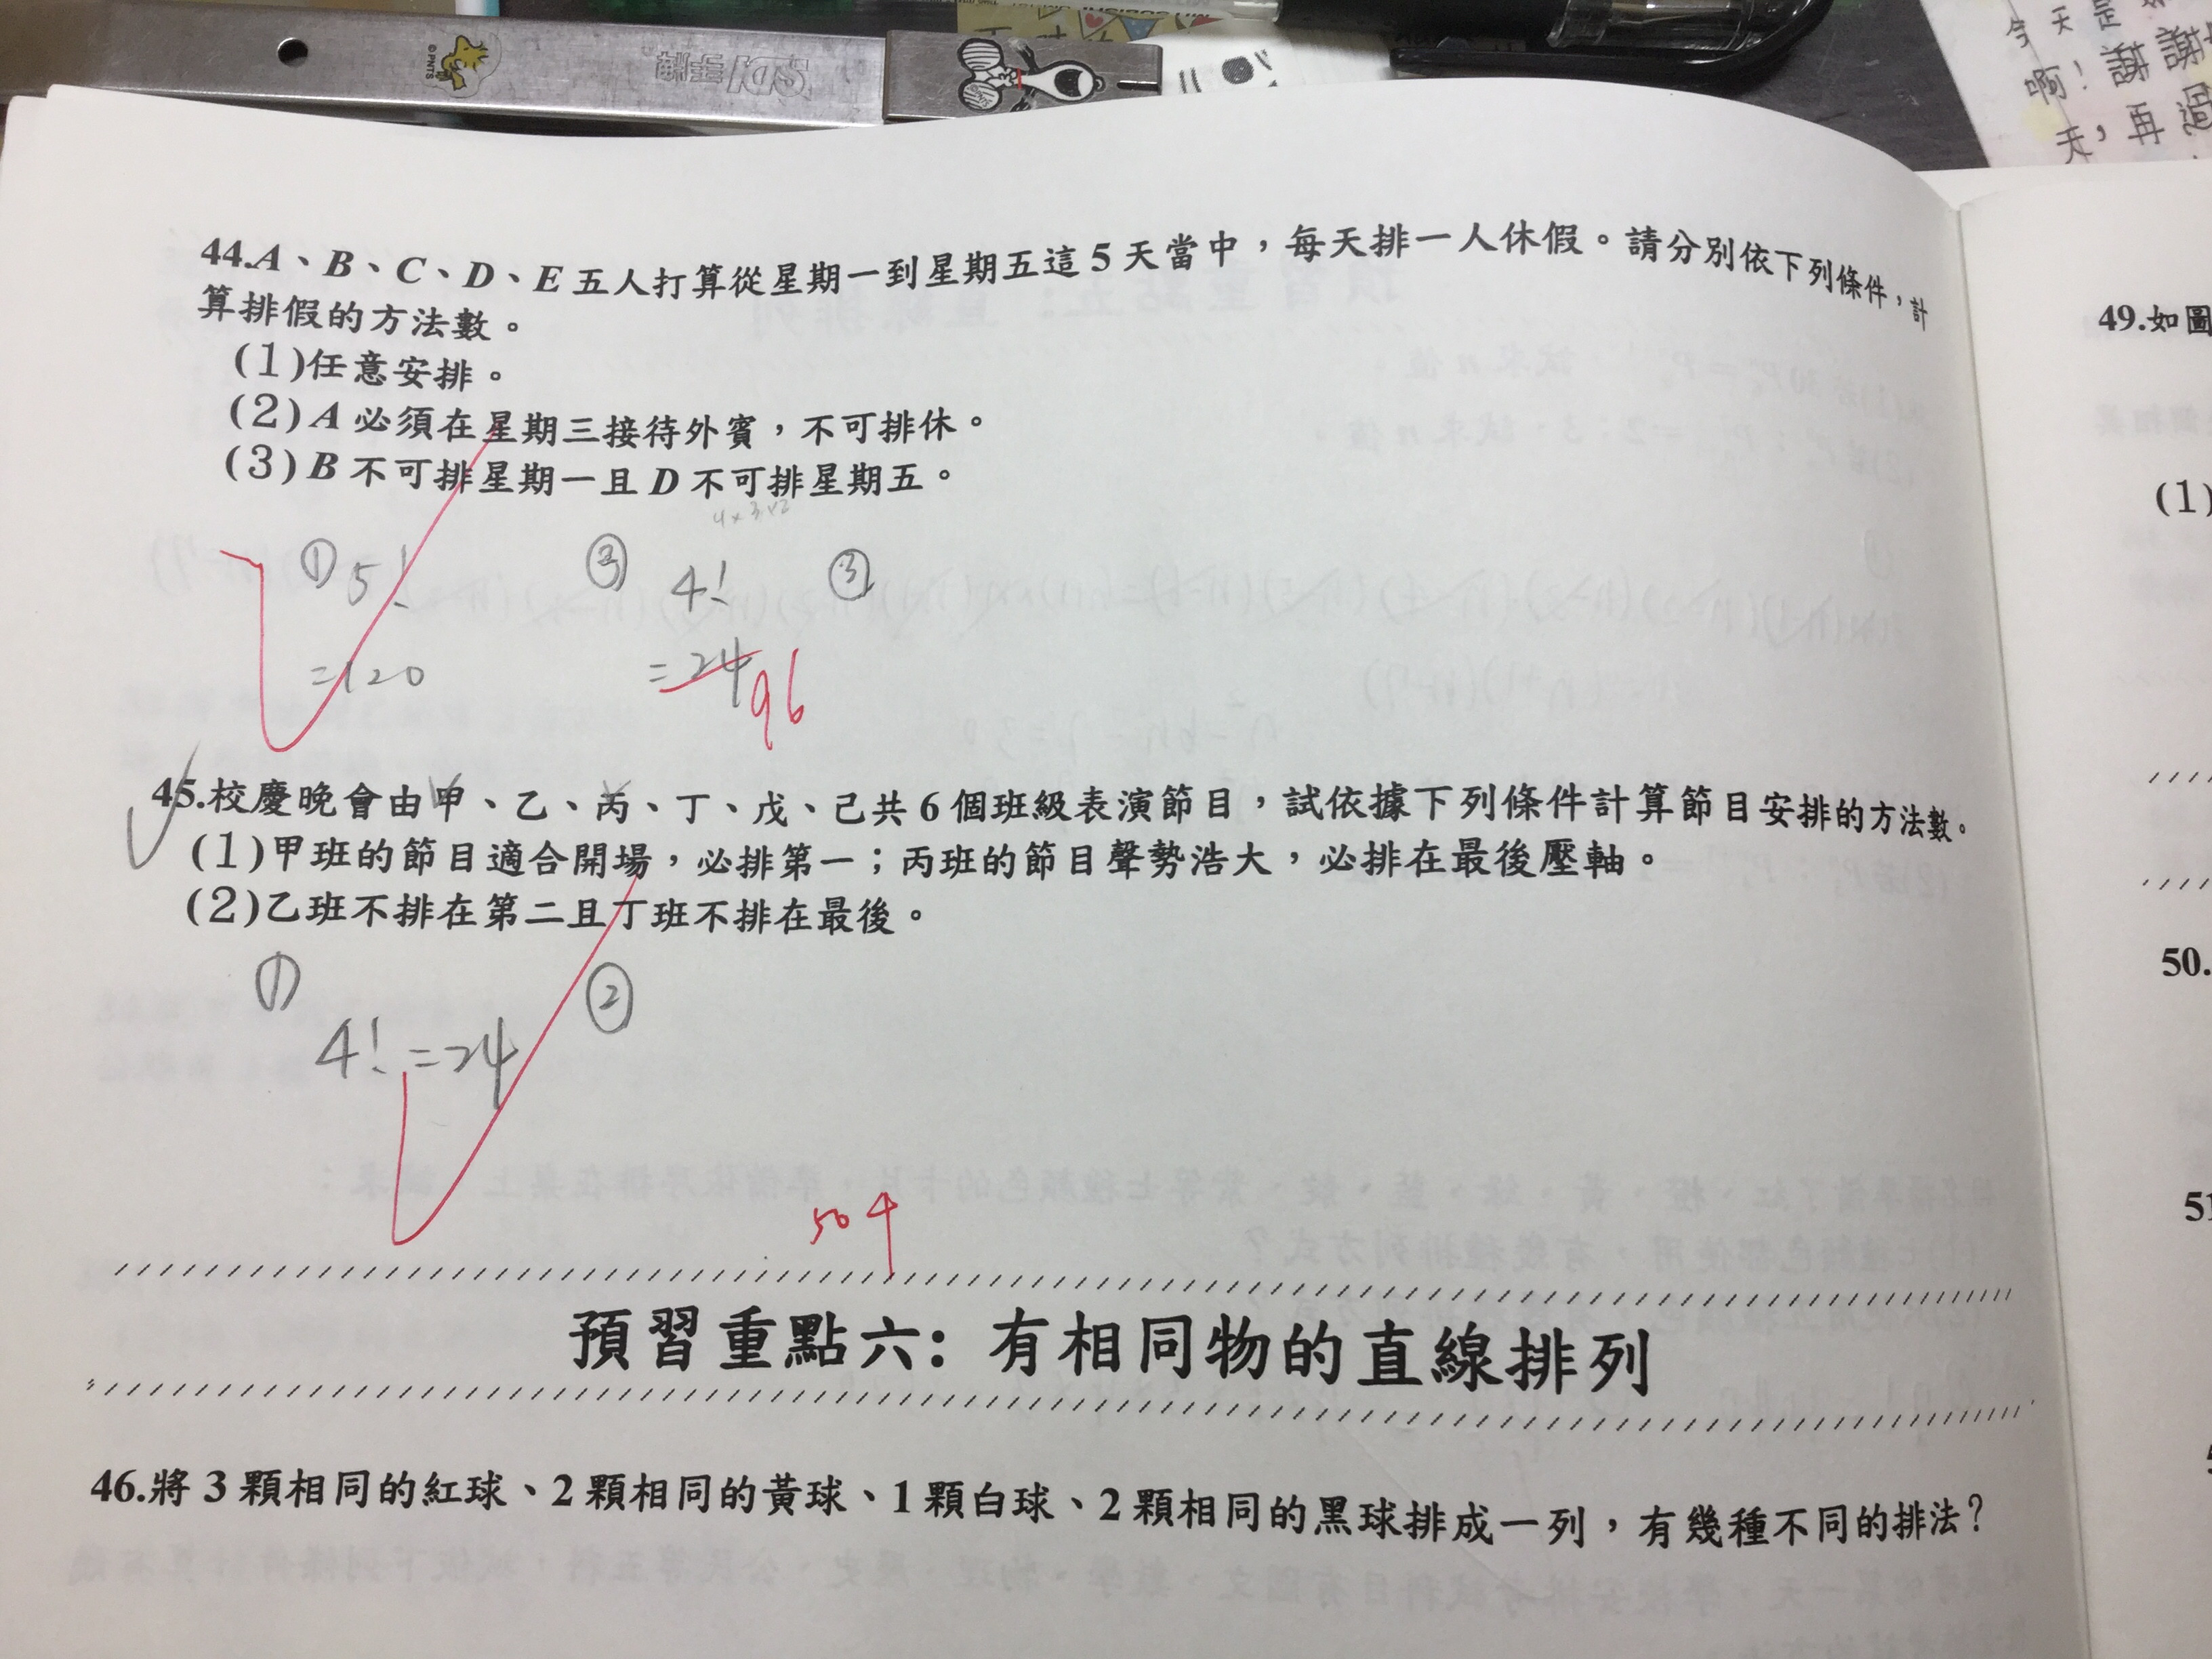 SDI 手牌
©PNTS
今天是
啊!謝謝
天,再過
44.A、B、C、D、E五人打算從星期一到星期五這5天當中,每天排一人休假。請分別依下列條件,計
算排假的方法數。
(1)任意安排。
(2)A必須在星期三接待外賓,不可排休。
(3)B不可排星期一且D不可排星期五。
4×3×2
① 5! ② 4! ③
=120 =24 96
45.校慶晚會由甲、乙、丙、丁、戊、己共6個班級表演節目,試依據下列條件計算節目安排的方法數。
(1)甲班的節目適合開場,必排第一;丙班的節目聲勢浩大,必排在最後壓軸。
(2)乙班不排在第二且丁班不排在最後。
① ②
4!=24
504
預習重點六:有相同物的直線排列
46.將3顆相同的紅球、2顆相同的黃球、1顆白球、2顆相同的黑球排成一列,有幾種不同的排法?
49.如圖
(1)
50.
51